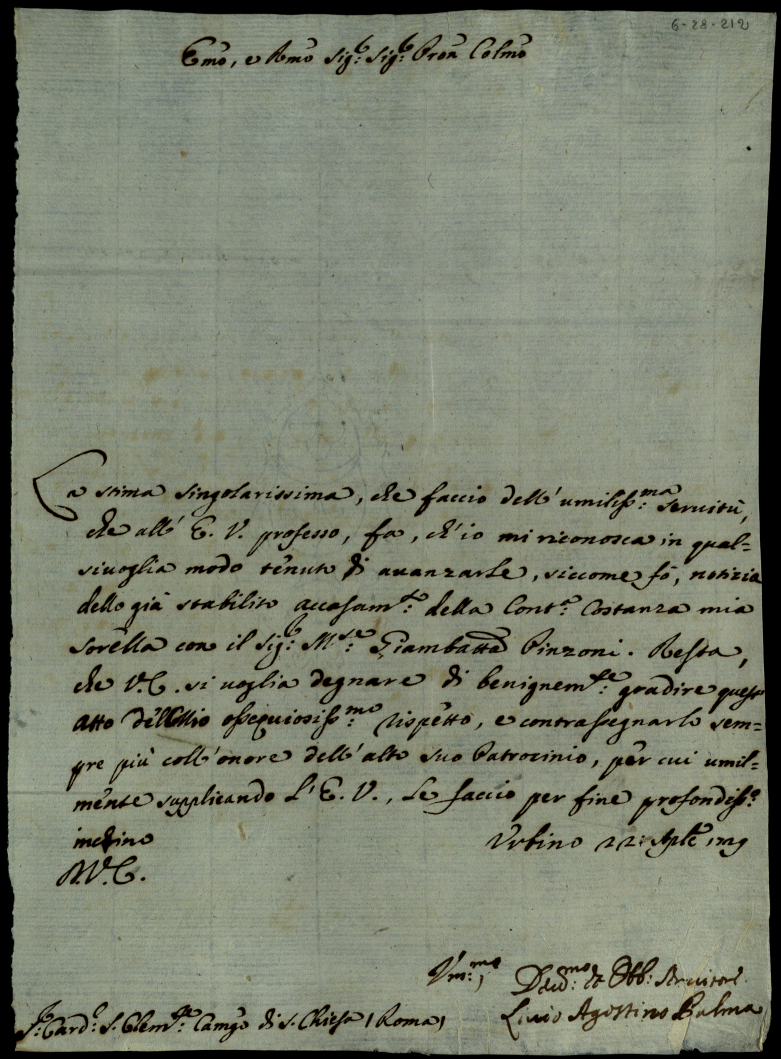 6-28-212
Emo, e Rmo Sigr: Sigr: Pron Colmo
La stima singolarissima, che faccio dell'umiliss:ma servitù,
che all' E. V. professo, fa, ch'io mi riconosca in qual=
sivoglia modo tenuto di avanzarle, siccome fò, notizia
dello già stabilito accasam:to della Cont:a Costanza mia
sorella con il Sigr: M:se Giambatta Pinzoni. Resta,
che V.E. si voglia degnare di benignem:te gradire questo
atto del Mio ossequiosiss:mo rispetto, e contrassegnarlo sem=
pre più coll'onore dell'alto suo Patrocinio, per cui umil=
mente supplicando l'E. V., Le faccio per fine profondiss:o
inchino
Urbino 22: Aple
D.V.E.
Um:mo, Dev:mo et Obb: Servitore
Livio Agostino Palma
Card:l S. Clem:te di S. Chiesa (Roma)